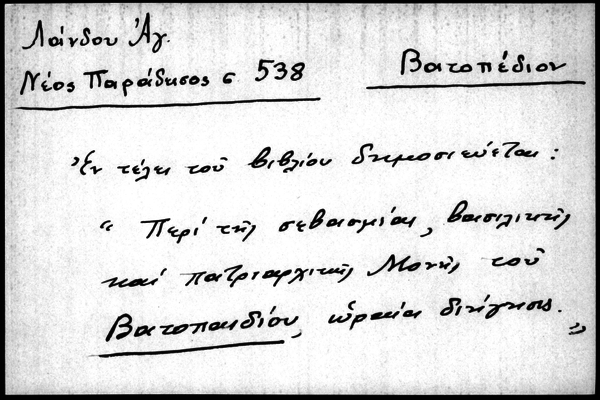 Λάνδου Ἀγ.
Νέος Παράδεισος σ 538
Βατοπέδιον
Ἐν τέλει τοῦ βιβλίου δημοσιεύεται:
" Περί τῆς σεβασμίας, βασιλικῆς
καί πατριαρχικῆς Μονῆς τοῦ
Βατοπαιδίου, ὡραία διήγησις. "